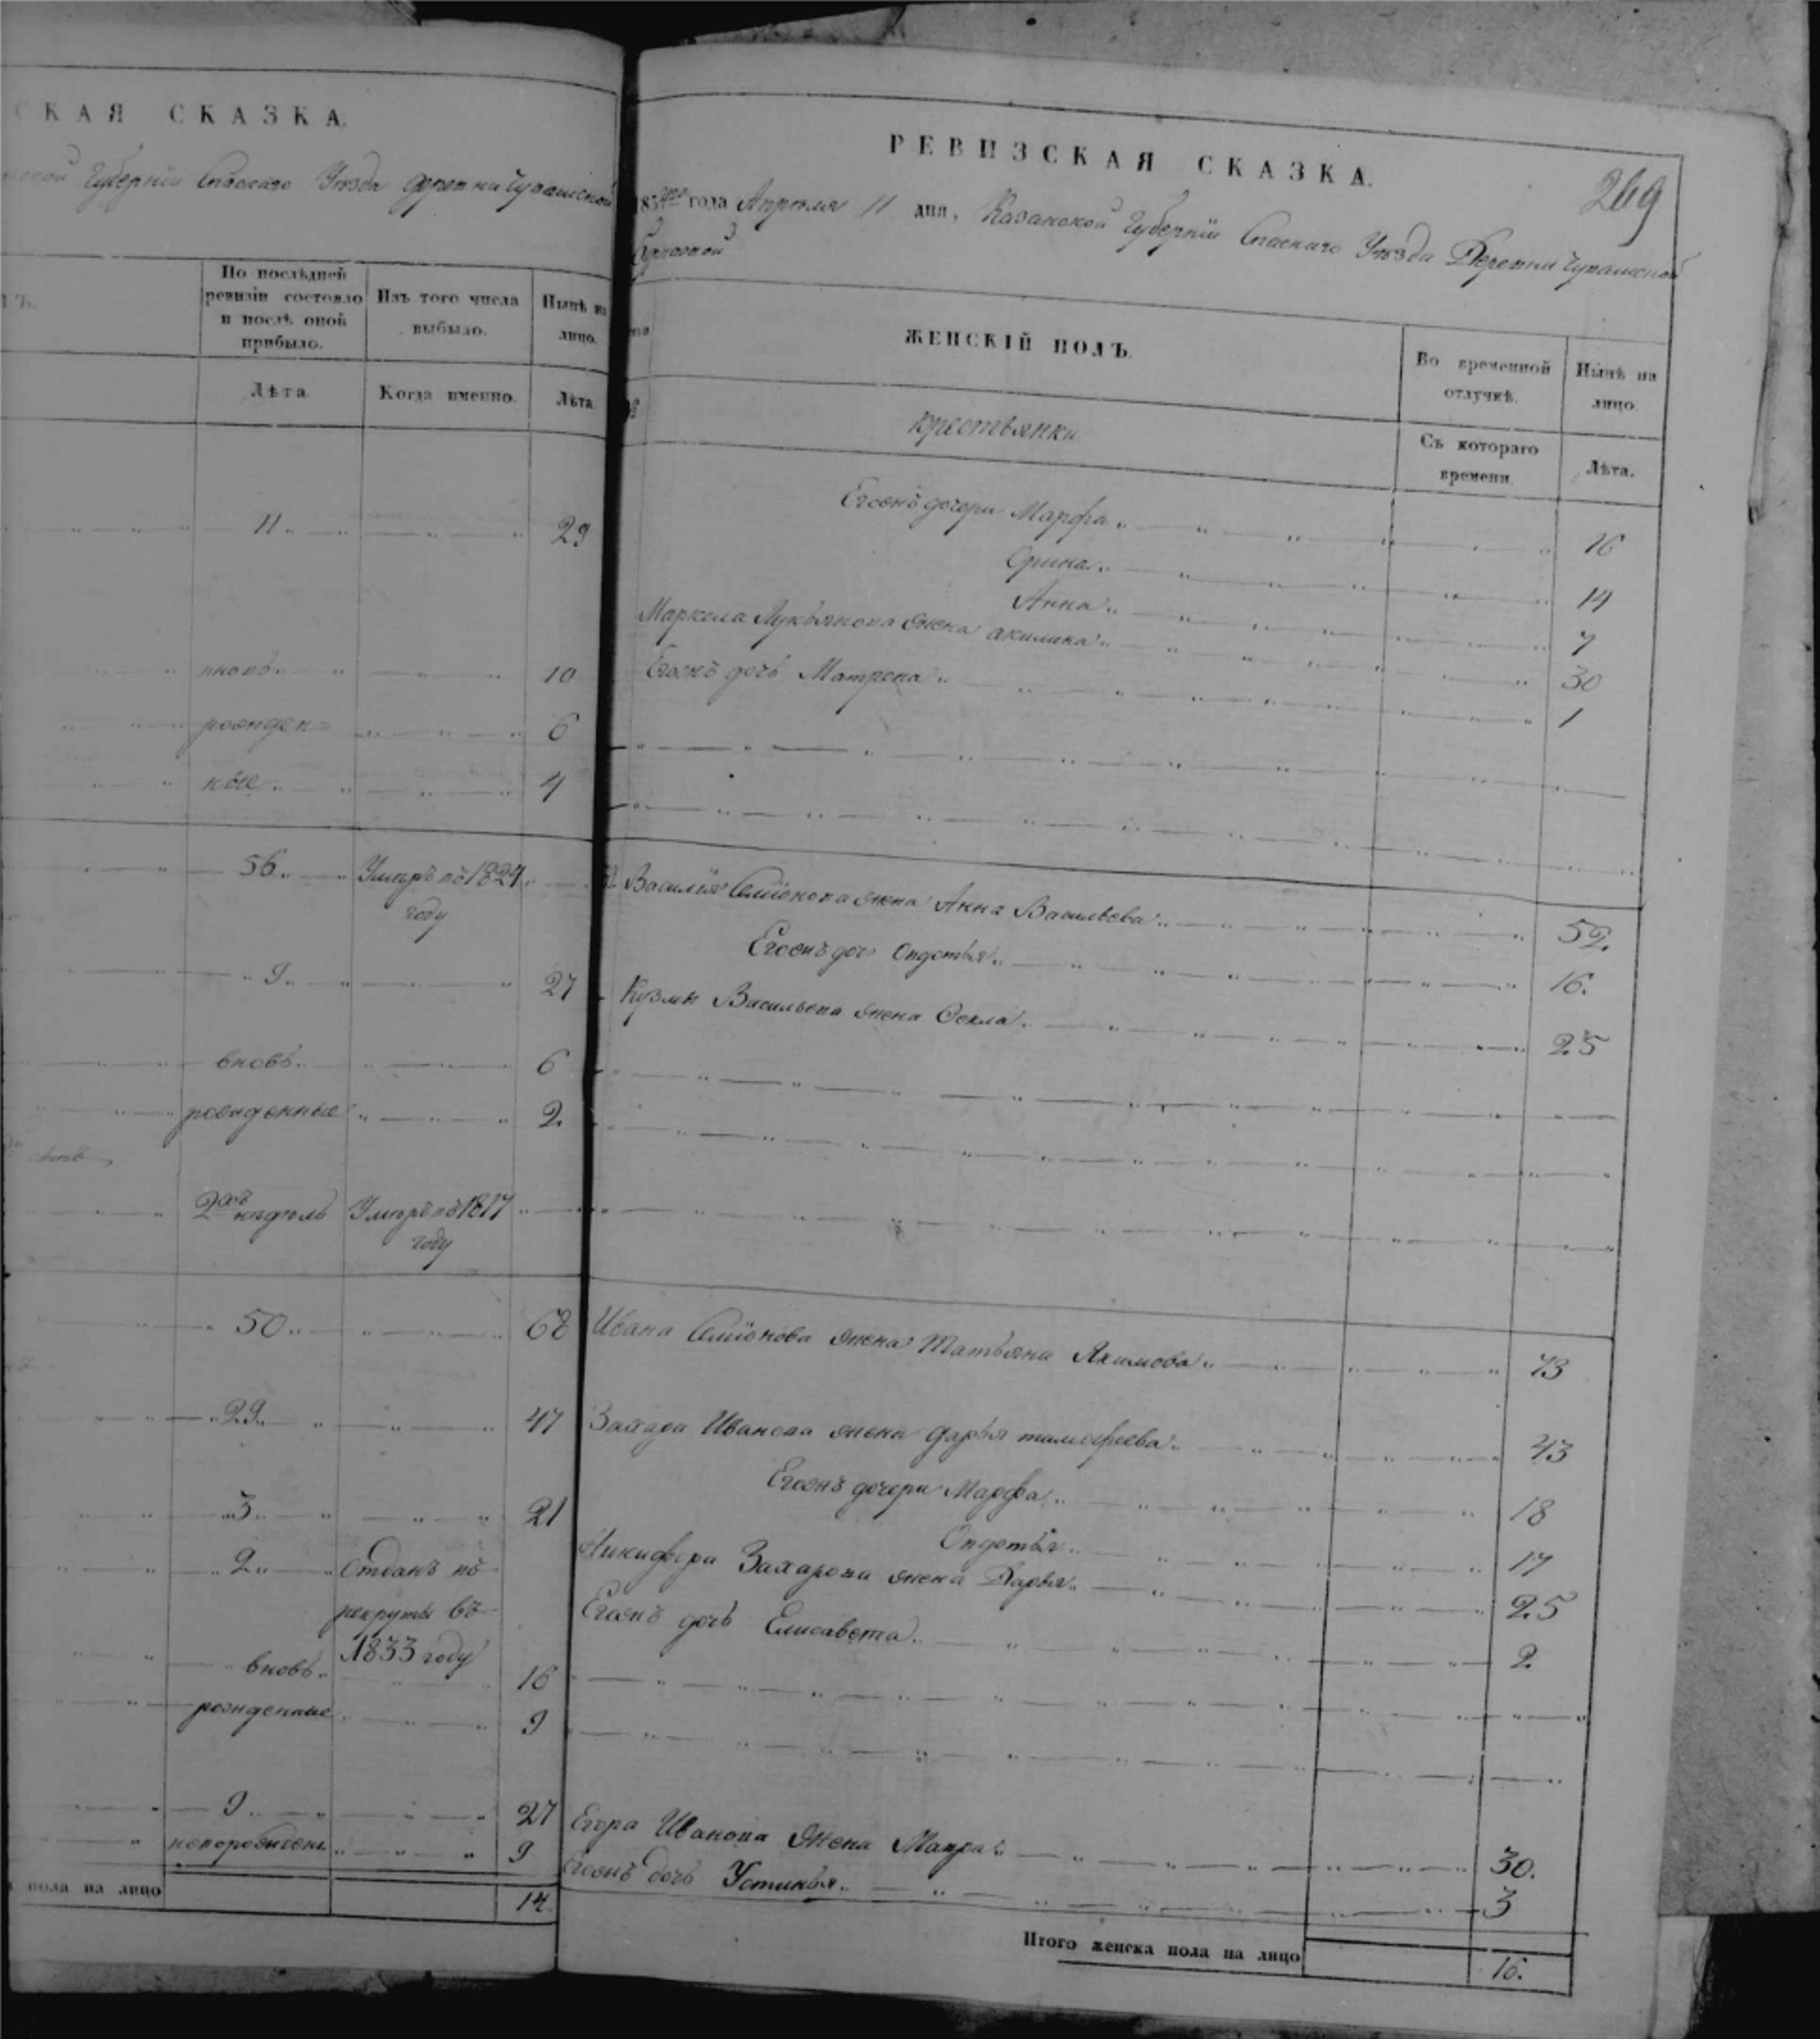 СКАЯ СКАЗКА.
Губернiи Спаскаго Уѣзда деревни Чувашской
По послѣдней ревизiи состояло и послѣ оной прибыло.
Изъ того числа выбыло.
Нынѣ на лицо.
Лѣта.
Когда именно.
Лѣта.
11 29
вновь 10
рожден= 6
ные 4
56 Умеръ въ 1824 году
9 27
вновь 6
рожденные 2
2хъ недѣль Умеръ въ 1817 году
50 68
29 47
3 21
2 Отданъ въ
рекруты въ
1833 году
вновь 16
рожденные 9
9 27
новорожден 9
пола на лицо 14.
РЕВИЗСКАЯ СКАЗКА.
269
года Апреля 11 дня, Казанской Губернiи Спаскаго Уѣзда Деревни Чувашской
ЖЕНСКIЙ ПОЛЪ.
Во временной отлучкѣ.
Нынѣ на лицо.
Крестьянки
Съ котораго времени.
Лѣта.
Егожъ дочери Марфа 16
Орина 14
Анна 7
Маркела Лукьянова жена акилина 30
Егожъ дочь Матрена 1
Василiя Семiонова жена Анна Васильева 52.
Егожъ доч Овдотья 16.
Кузмы Васильева жена Фекла 25
Ивана Семiонова жена Татьяна Якимова 73
Захара Иванова жена дарья тимофеева 43
Егожъ дочери Марфа 18
Овдотья 17
Никифора Захарова жена Дарья 25
Егожъ дочь Елисавета 2
Егора Иванова жена Мавра 30.
Егожъ дочь Устинья 3
Итого женска пола на лицо 16.